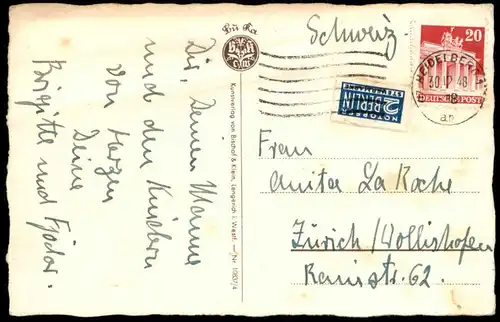 Dir, Deinem Manne
und den Kindern
von Herzen
Deine
Brigitte und Fjodor.
Bü Ka
B K
Kunstverlag von Bischof & Klein, Lengerich i. Westf. — Nr. 11837/4
Schweiz
20
HEIDELBERG
30.12.48
DEUTSCHE POST
NOTOPFER
2 BERLIN
STEUERMARKE
Frau
Anita La Roche
Zürich/Wollishofen
Rainstr. 62.